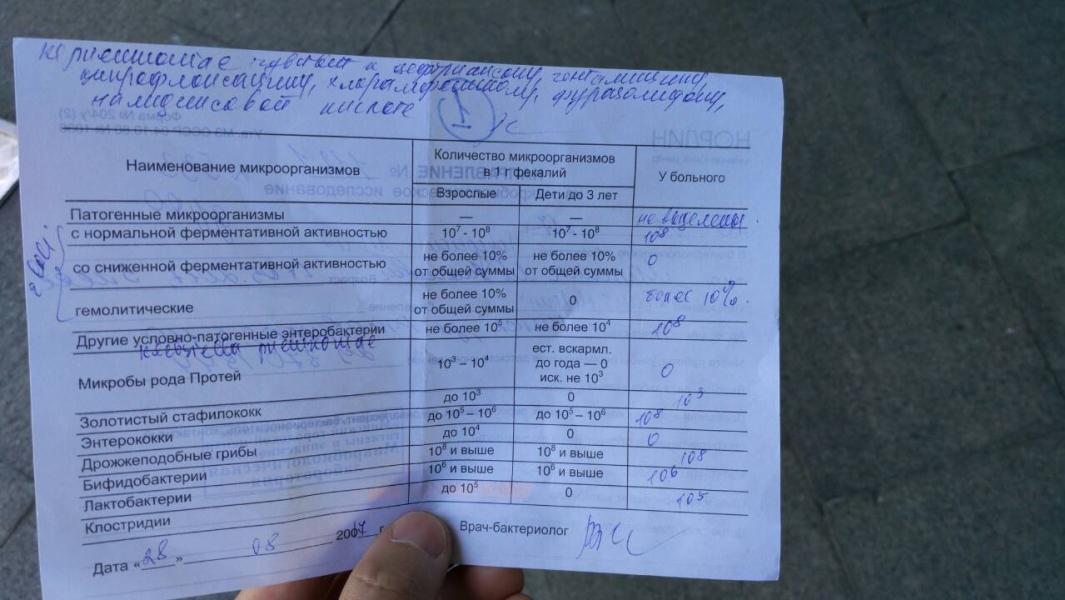 Kl pneumoniae чувствит к цефтриаксону, гентамицину,
ципрофлоксацину, хлорамфениколу, фуразолидону,
налидиксовой кислоте
1
Форма № 204/у (2)
НОРЛИН
Наименование микроорганизмов Количество микроорганизмов в 1 г фекалий У больного
Взрослые Дети до 3 лет
Патогенные микроорганизмы — — не выделены.
E coli
с нормальной ферментативной активностью 10⁷ - 10⁸ 10⁷ - 10⁸ 10⁸
со сниженной ферментативной активностью не более 10% от общей суммы не более 10% от общей суммы 0
гемолитические не более 10% от общей суммы 0 более 10%.
Другие условно-патогенные энтеробактерии не более 10⁵ не более 10⁴ 10⁸
klebsiella pneumoniae
Микробы рода Протей 10³ – 10⁴ ест. вскармл. до года — 0 иск. не 10³ 0
Золотистый стафилококк до 10³ 0 10³
Энтерококки до 10⁵ – 10⁶ до 10⁵ – 10⁶ 10⁸
Дрожжеподобные грибы до 10⁴ 0 0
Бифидобактерии 10⁸ и выше 10⁸ и выше 10⁸
Лактобактерии 10⁶ и выше 10⁶ и выше 10⁶
Клостридии до 10⁵ 0 10⁵
Дата «28» 08 2017 г Врач-бактериолог